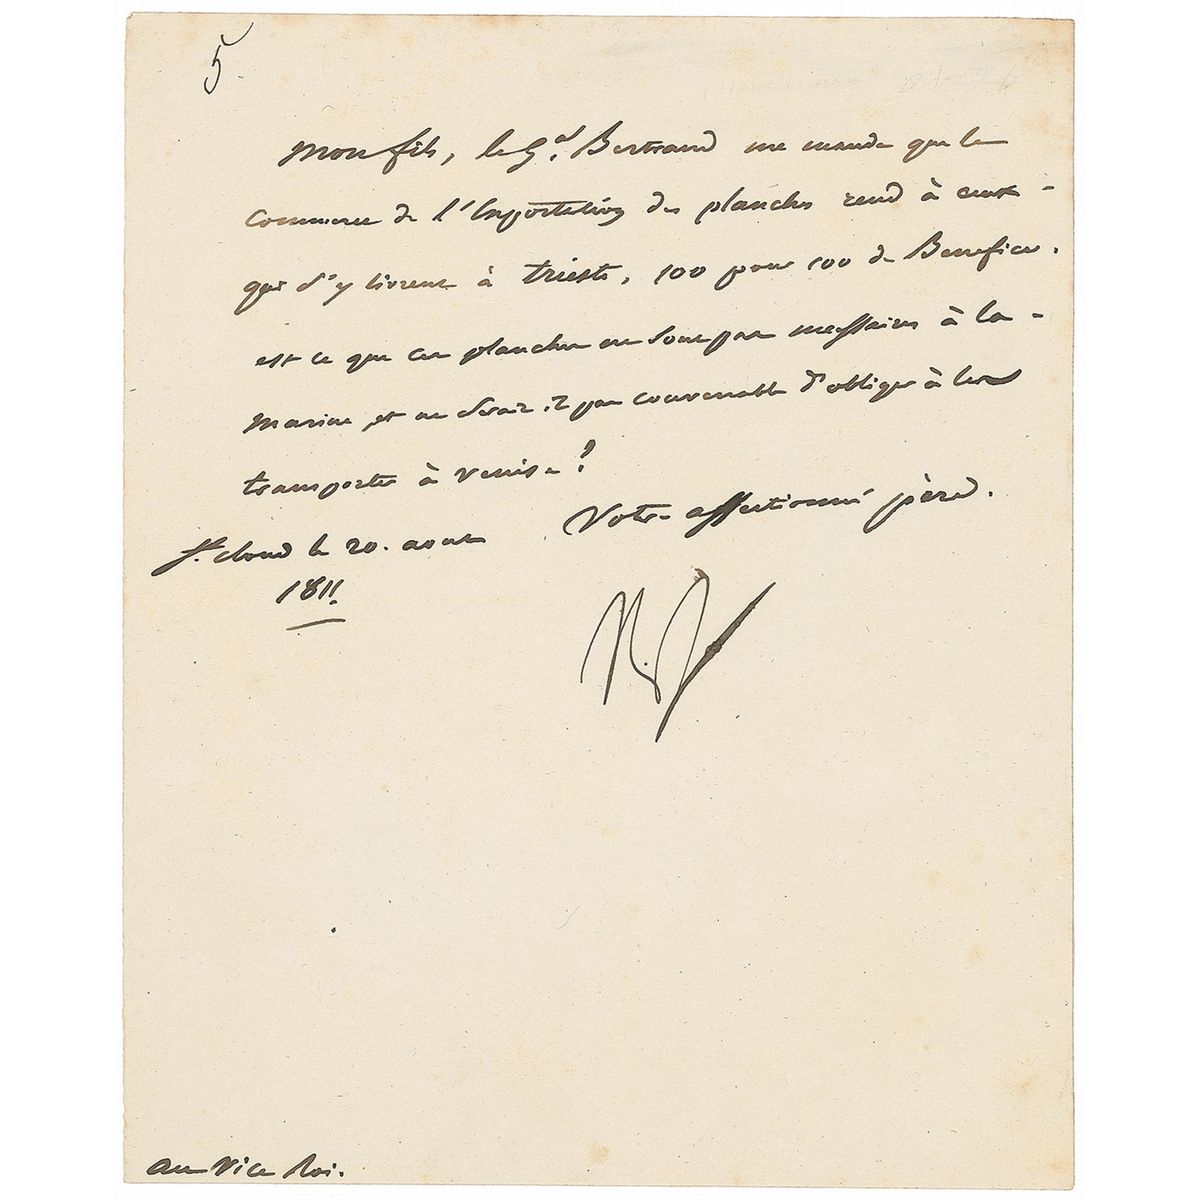 5.
Mon fils, le Gal. Bertrand me mande que le
commerce de l'Exportation des planches rend à ceux
qui s'y livrent à Trieste, 100 pour 100 de Benefice.
est ce que ces planches ne sont pas necessaires à la
Marine et ne serait il pas convenable d'obliger à les
transporter à Venise ?
Votre affectionné père.
St. Cloud le 20. aout
1811.
Np
au Vice Roi.